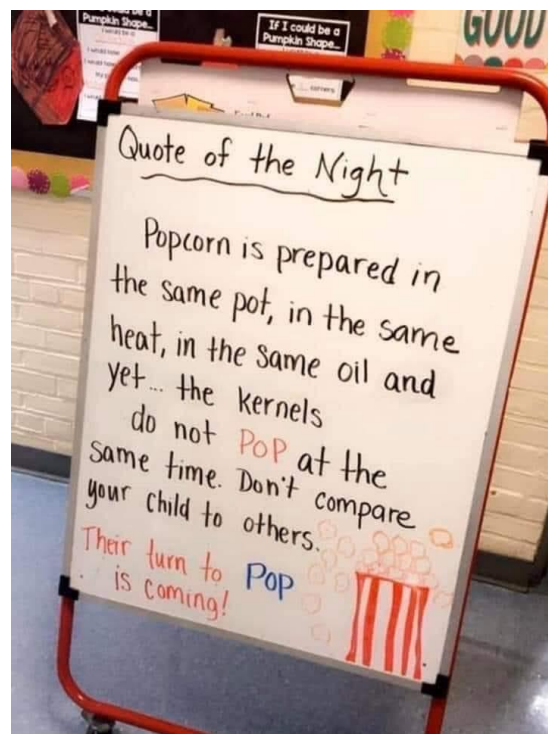 Pumpkin Shape...
If I could be a
Pumpkin Shape...
GOOD
corners
Quote of the Night
Popcorn is prepared in
the same pot, in the same
heat, in the same oil and
yet... the kernels
do not POP at the
same time. Don't compare
your child to others.
Their turn to POP
is coming!